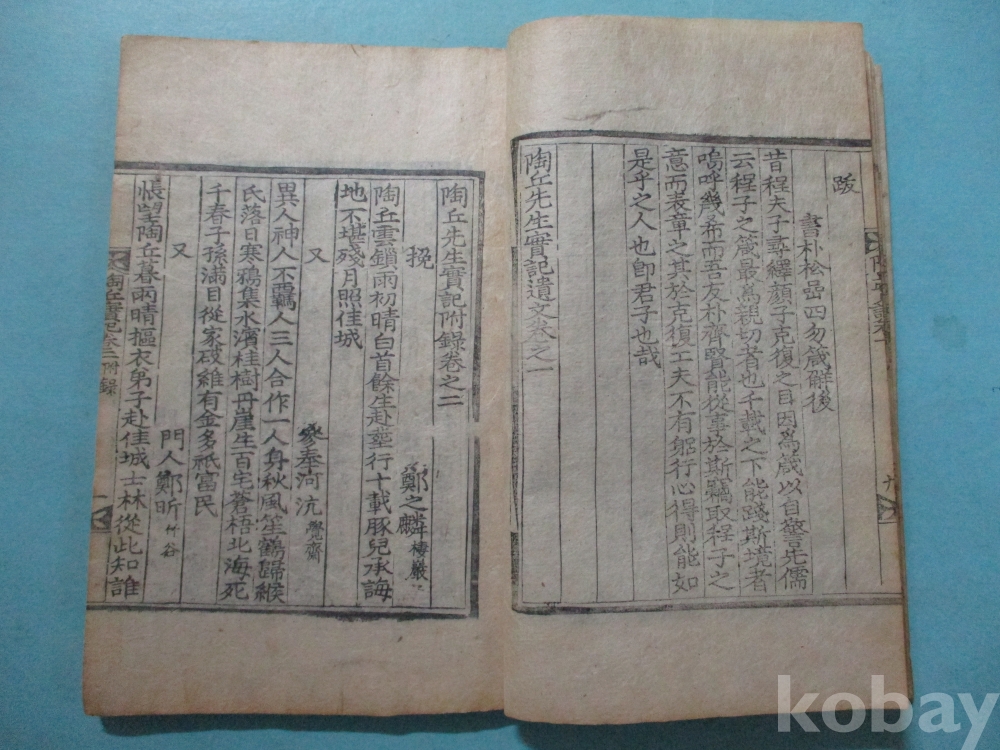 跋
書朴松嵒四勿箴解後
昔程夫子尋繹顔子克復之目因爲箴以自警先儒
云程子之箴最爲親切者也千載之下能踐斯境者
嗚呼幾希而吾友朴齊賢能從事於斯竊取程子之
意而表章之其於克復工夫不有躬行心得則能如
是乎之人也卽君子也哉
陶丘先生實記遺文卷之一
陶丘先生實記附錄卷之二
挽
鄭之麟 棲巖
陶丘雲鎖雨初晴白首餘生赴葬行十載豚兒承誨
地不堪殘月照佳城
又
參奉河沆 覺齋
異人神人不羈人三人合作一人身秋風笙鶴歸緱
氏落日寒鴉集水濱桂樹丹崖生百宅蒼梧北海死
千春子孫滿目從家破維有金多祇富民
又
門人鄭昕 竹谷
悵望陶丘暮雨晴摳衣弟子赴佳城士林從此知誰
陶丘實記卷二附錄
一
九
kobay